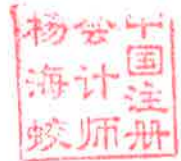 中国注册
会计师
杨海蛟